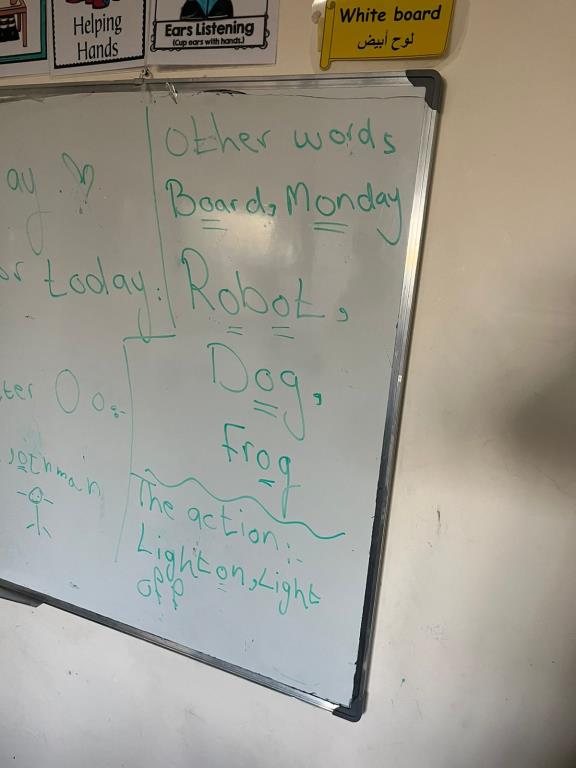 Helping
Hands
Ears Listening
(Cup ears with hands.)
White board
لوح أبيض
ay
or today:
ter O o
othman
Other words
Board, Monday
Robot,
Dog,
Frog
The action:-
Light on, Light
off